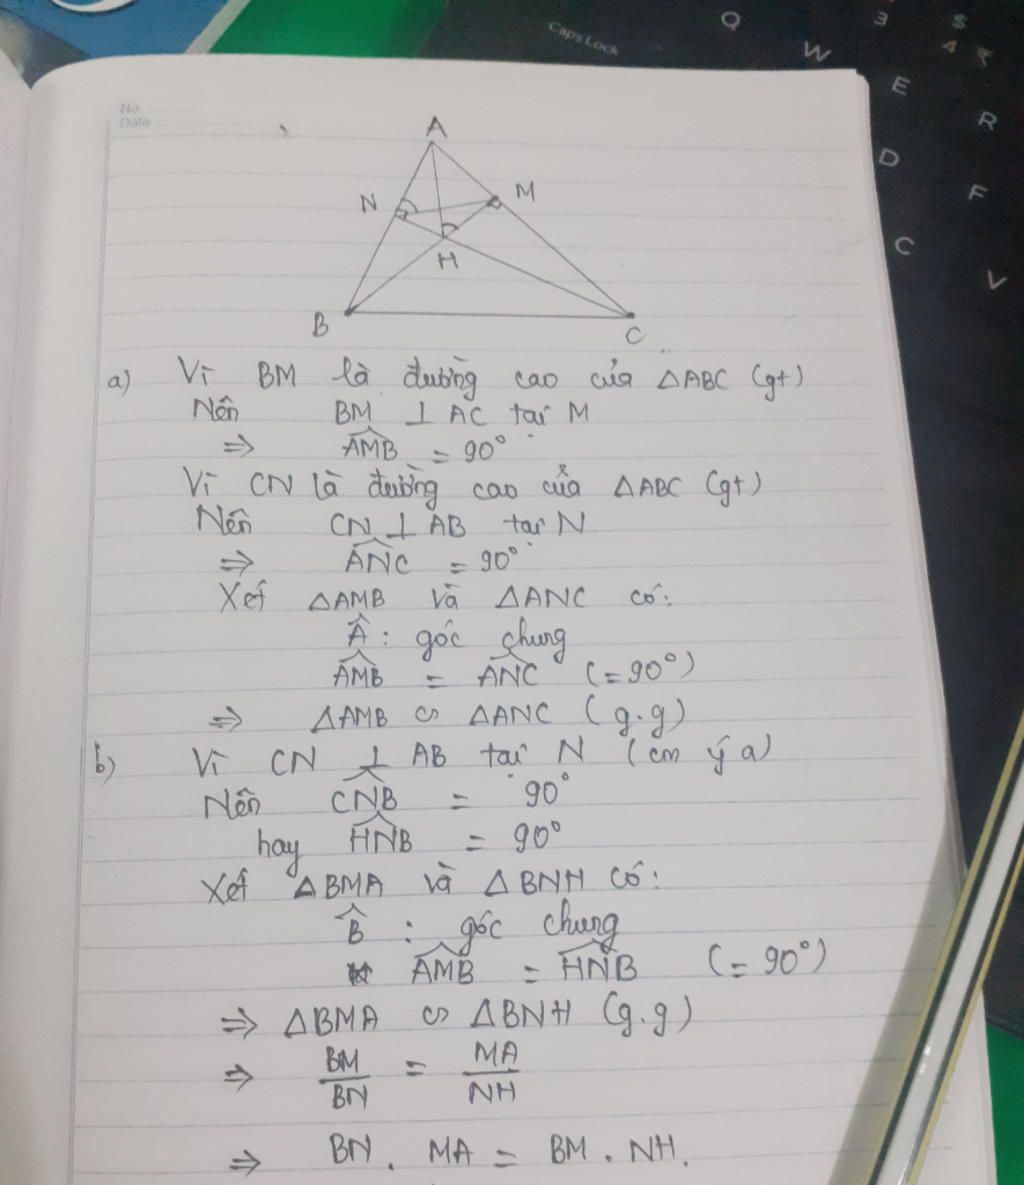 Caps Lock
Q
W
3
$
4 ₹
E
R
D
F
C
V
No. ..........
Date ....................
A
N
M
H
B
C
a) Vì BM là đường cao của △ABC (gt)
Nên BM ⊥ AC tại M
⇒ \widehat{AMB} = 90°
Vì CN là đường cao của △ABC (gt)
Nên CN ⊥ AB tại N
⇒ \widehat{ANC} = 90°
Xét △AMB và △ANC có:
\widehat{A} : góc chung
\widehat{AMB} = \widehat{ANC} (= 90°)
⇒ △AMB ∽ △ANC (g.g)
b) Vì CN ⊥ AB tại N (cm ý a)
Nên \widehat{CNB} = 90°
hay \widehat{HNB} = 90°
Xét △BMA và △BNH có:
\widehat{B} : góc chung
\widehat{AMB} = \widehat{HNB} (= 90°)
⇒ △BMA ∽ △BNH (g.g)
⇒ \frac{BM}{BN} = \frac{MA}{NH}
⇒ BN . MA = BM . NH.